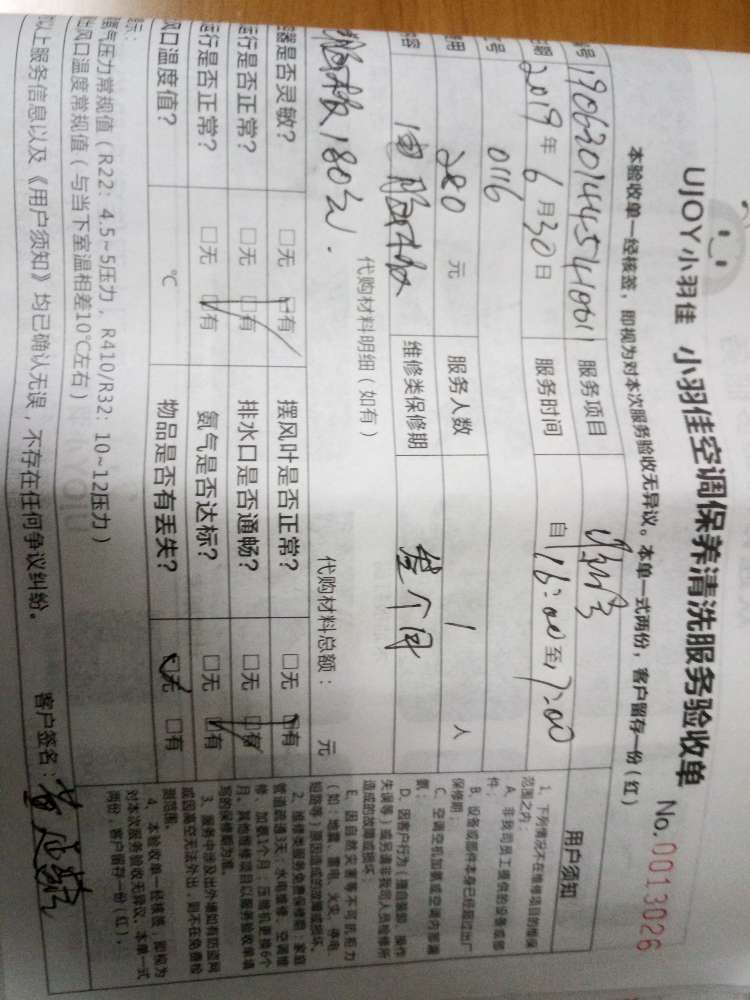 UJOY小羽佳 小羽佳空调保养清洗服务验收单
No.0013026
本验收单一经核签，即视为对本次服务验收无异议。本单一式两份，客户留存一份（红）
服务项目
2019年6月30日 服务时间 自16:00至17:00
0116
280元 服务人数 1人
维修类保修期
代购材料明细（如有） 代购材料总额： 元
180元.
器是否灵敏？ □无 □有 摆风叶是否正常？ □无 □有
行是否正常？ □无 □有 排水口是否通畅？ □无 □有
运行是否正常？ □无 □有 氨气是否达标？ □无 □有
风口温度值？ ℃ 物品是否有丢失？ □无 □有
氨气压力常规值（R22：4.5~5压力，R410/R32：10~12压力）
出风口温度常规值（与当下室温相差10℃左右）
以上服务信息以及《用户须知》均已确认无误，不存在任何争议纠纷。 客户签名：
用户须知
1、下列情况不在维修项目的维保
范围之内：
A、非我司员工提供的设备或部
件；
B、设备或部件本身已经超过出厂
保修期；
C、空调空机加氨或空调内部漏
氨；
D、因客户行为（擅自装卸、操作
失误等）或另请非我司人员检修所
造成的故障或损坏；
E、因自然灾害等不可抗拒力
（如：地震、雷电、火灾、停电、
短路等）原因造成的故障或损坏。
2、维修类服务免费保修期：家庭
管道疏通3天；水电维修、空调维
修、加氨1个月；压缩机更换6个
月。其他维修项目以服务验收单填
写的保修期为准。
3、服务中涉及出外墙如有防盗网
或因高空无法外出，则不在免费检
测范围。
4、本验收单一经核签，即视为
对本次服务验收无异议。本单一式
两份，客户留存一份（红）。